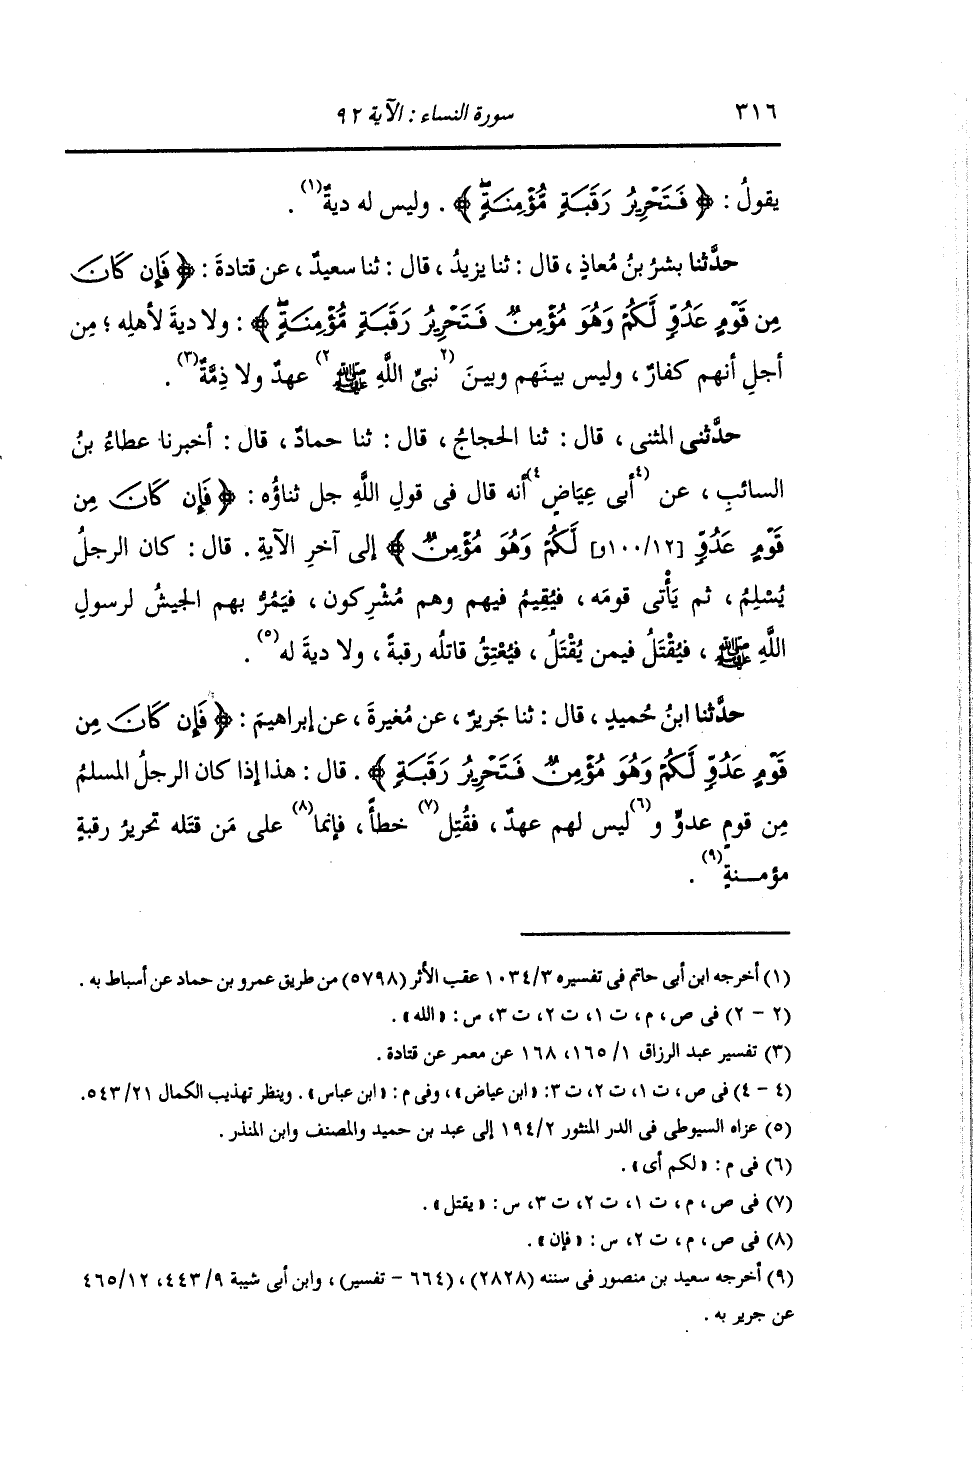 ٣١٦
سورة النساء : الآية ٩٢
يقولُ : ﴿ فَتَحْرِيرُ رَقَبَةٍ مُّؤْمِنَةٍ ﴾ . وليس له ديةٌ(١) .
حدَّثنا بشرُ بنُ مُعاذٍ ، قال : ثنا يزيدُ ، قال : ثنا سعيدٌ ، عن قتادةَ : ﴿ فَإِن كَانَ
مِن قَوْمٍ عَدُوٍّ لَّكُمْ وَهُوَ مُؤْمِنٌ فَتَحْرِيرُ رَقَبَةٍ مُّؤْمِنَةٍ ﴾ : ولا ديةَ لأهلِه ؛ مِن
أجلِ أنهم كفارٌ ، وليس بينَهم وبينَ (٢نبىِّ اللَّهِ ﷺ٢) عهدٌ ولا ذِمَّةٌ(٣) .
حدَّثنى المثنى ، قال : ثنا الحجاجُ ، قال : ثنا حمادٌ ، قال : أخبرنا عطاءُ بنُ
السائبِ ، عن (٤أبى عِيَاضٍ٤) أنه قال فى قولِ اللَّهِ جل ثناؤُه : ﴿ فَإِن كَانَ مِن
قَوْمٍ عَدُوٍّ [١٠٠/١٢و] لَّكُمْ وَهُوَ مُؤْمِنٌ ﴾ إلى آخرِ الآيةِ . قال : كان الرجلُ
يُسْلِمُ ، ثم يَأْتى قومَه ، فيُقِيمُ فيهم وهم مُشْرِكون ، فيَمُرُّ بهم الجيشُ لرسولِ
اللَّهِ ﷺ ، فيُقْتَلُ فيمن يُقْتَلُ ، فيُعْتِقُ قاتلُه رقبةً ، ولا ديةَ له(٥) .
حدَّثنا ابنُ حُميدٍ ، قال : ثنا جَريرٌ ، عن مُغيرةَ ، عن إبراهيمَ : ﴿ فَإِن كَانَ مِن
قَوْمٍ عَدُوٍّ لَّكُمْ وَهُوَ مُؤْمِنٌ فَتَحْرِيرُ رَقَبَةٍ ﴾ . قال : هذا إذا كان الرجلُ المسلمُ
مِن قومٍ عدوٍّ و(٦)ليس لهم عهدٌ ، فقُتِل(٧) خطأً ، فإنما(٨) على مَن قتَله تحريرُ رقبةٍ
مؤمنةٍ(٩) .
(١) أخرجه ابن أبى حاتم فى تفسيره ١٠٣٤/٣ عقب الأثر (٥٧٩٨) من طريق عمرو بن حماد عن أسباط به .
(٢ - ٢) فى ص ، م ، ت ١ ، ت ٢ ، ت ٣ ، س : « الله » .
(٣) تفسير عبد الرزاق ١/ ١٦٥، ١٦٨ عن معمر عن قتادة .
(٤ - ٤) فى ص ، ت ١ ، ت ٢ ، ت ٣ : « ابن عياض » ، وفى م : « ابن عباس » . وينظر تهذيب الكمال ٥٤٣/٢١.
(٥) عزاه السيوطى فى الدر المنثور ١٩٤/٢ إلى عبد بن حميد والمصنف وابن المنذر .
(٦) فى م : « لكم أى » .
(٧) فى ص ، م ، ت ١ ، ت ٢ ، ت ٣ ، س : « يقتل » .
(٨) فى ص ، م ، ت ٢ ، س : « فإن » .
(٩) أخرجه سعيد بن منصور فى سننه (٢٨٢٨) ، (٦٦٤ - تفسير) ، وابن أبى شيبة ٩/ ٤٤٣، ٤٦٥/١٢
عن جرير به .